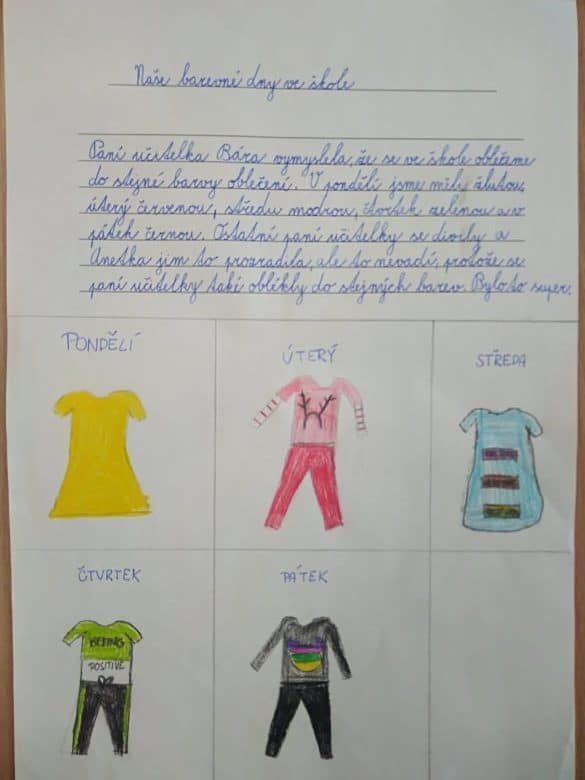 Naše barevné dny ve škole
Paní učitelka Bára vymyslela, že se ve škole oblečeme
do stejné barvy oblečení. V pondělí jsme měly žlutou,
úterý červenou, středu modrou, čtvrtek zelenou a v
pátek černou. Ostatní paní učitelky se divily a
Anetka jim to prozradila, ale to nevadí, protože se
paní učitelky také oblékly do stejných barev. Bylo to super.
PONDĚLÍ
ÚTERÝ
STŘEDA
ČTVRTEK
PÁTEK
BEEING
POSITIVE